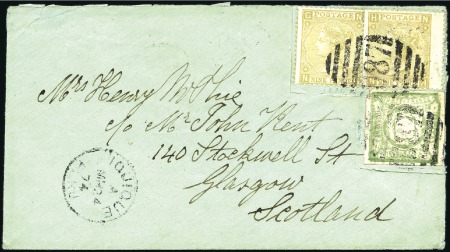 POSTAGE POSTAGE
D87
Mrs Henry McPhie
c/o Mr John Kent
140 Stockwell St
Glasgow
Scotland
IQUIQUE
74